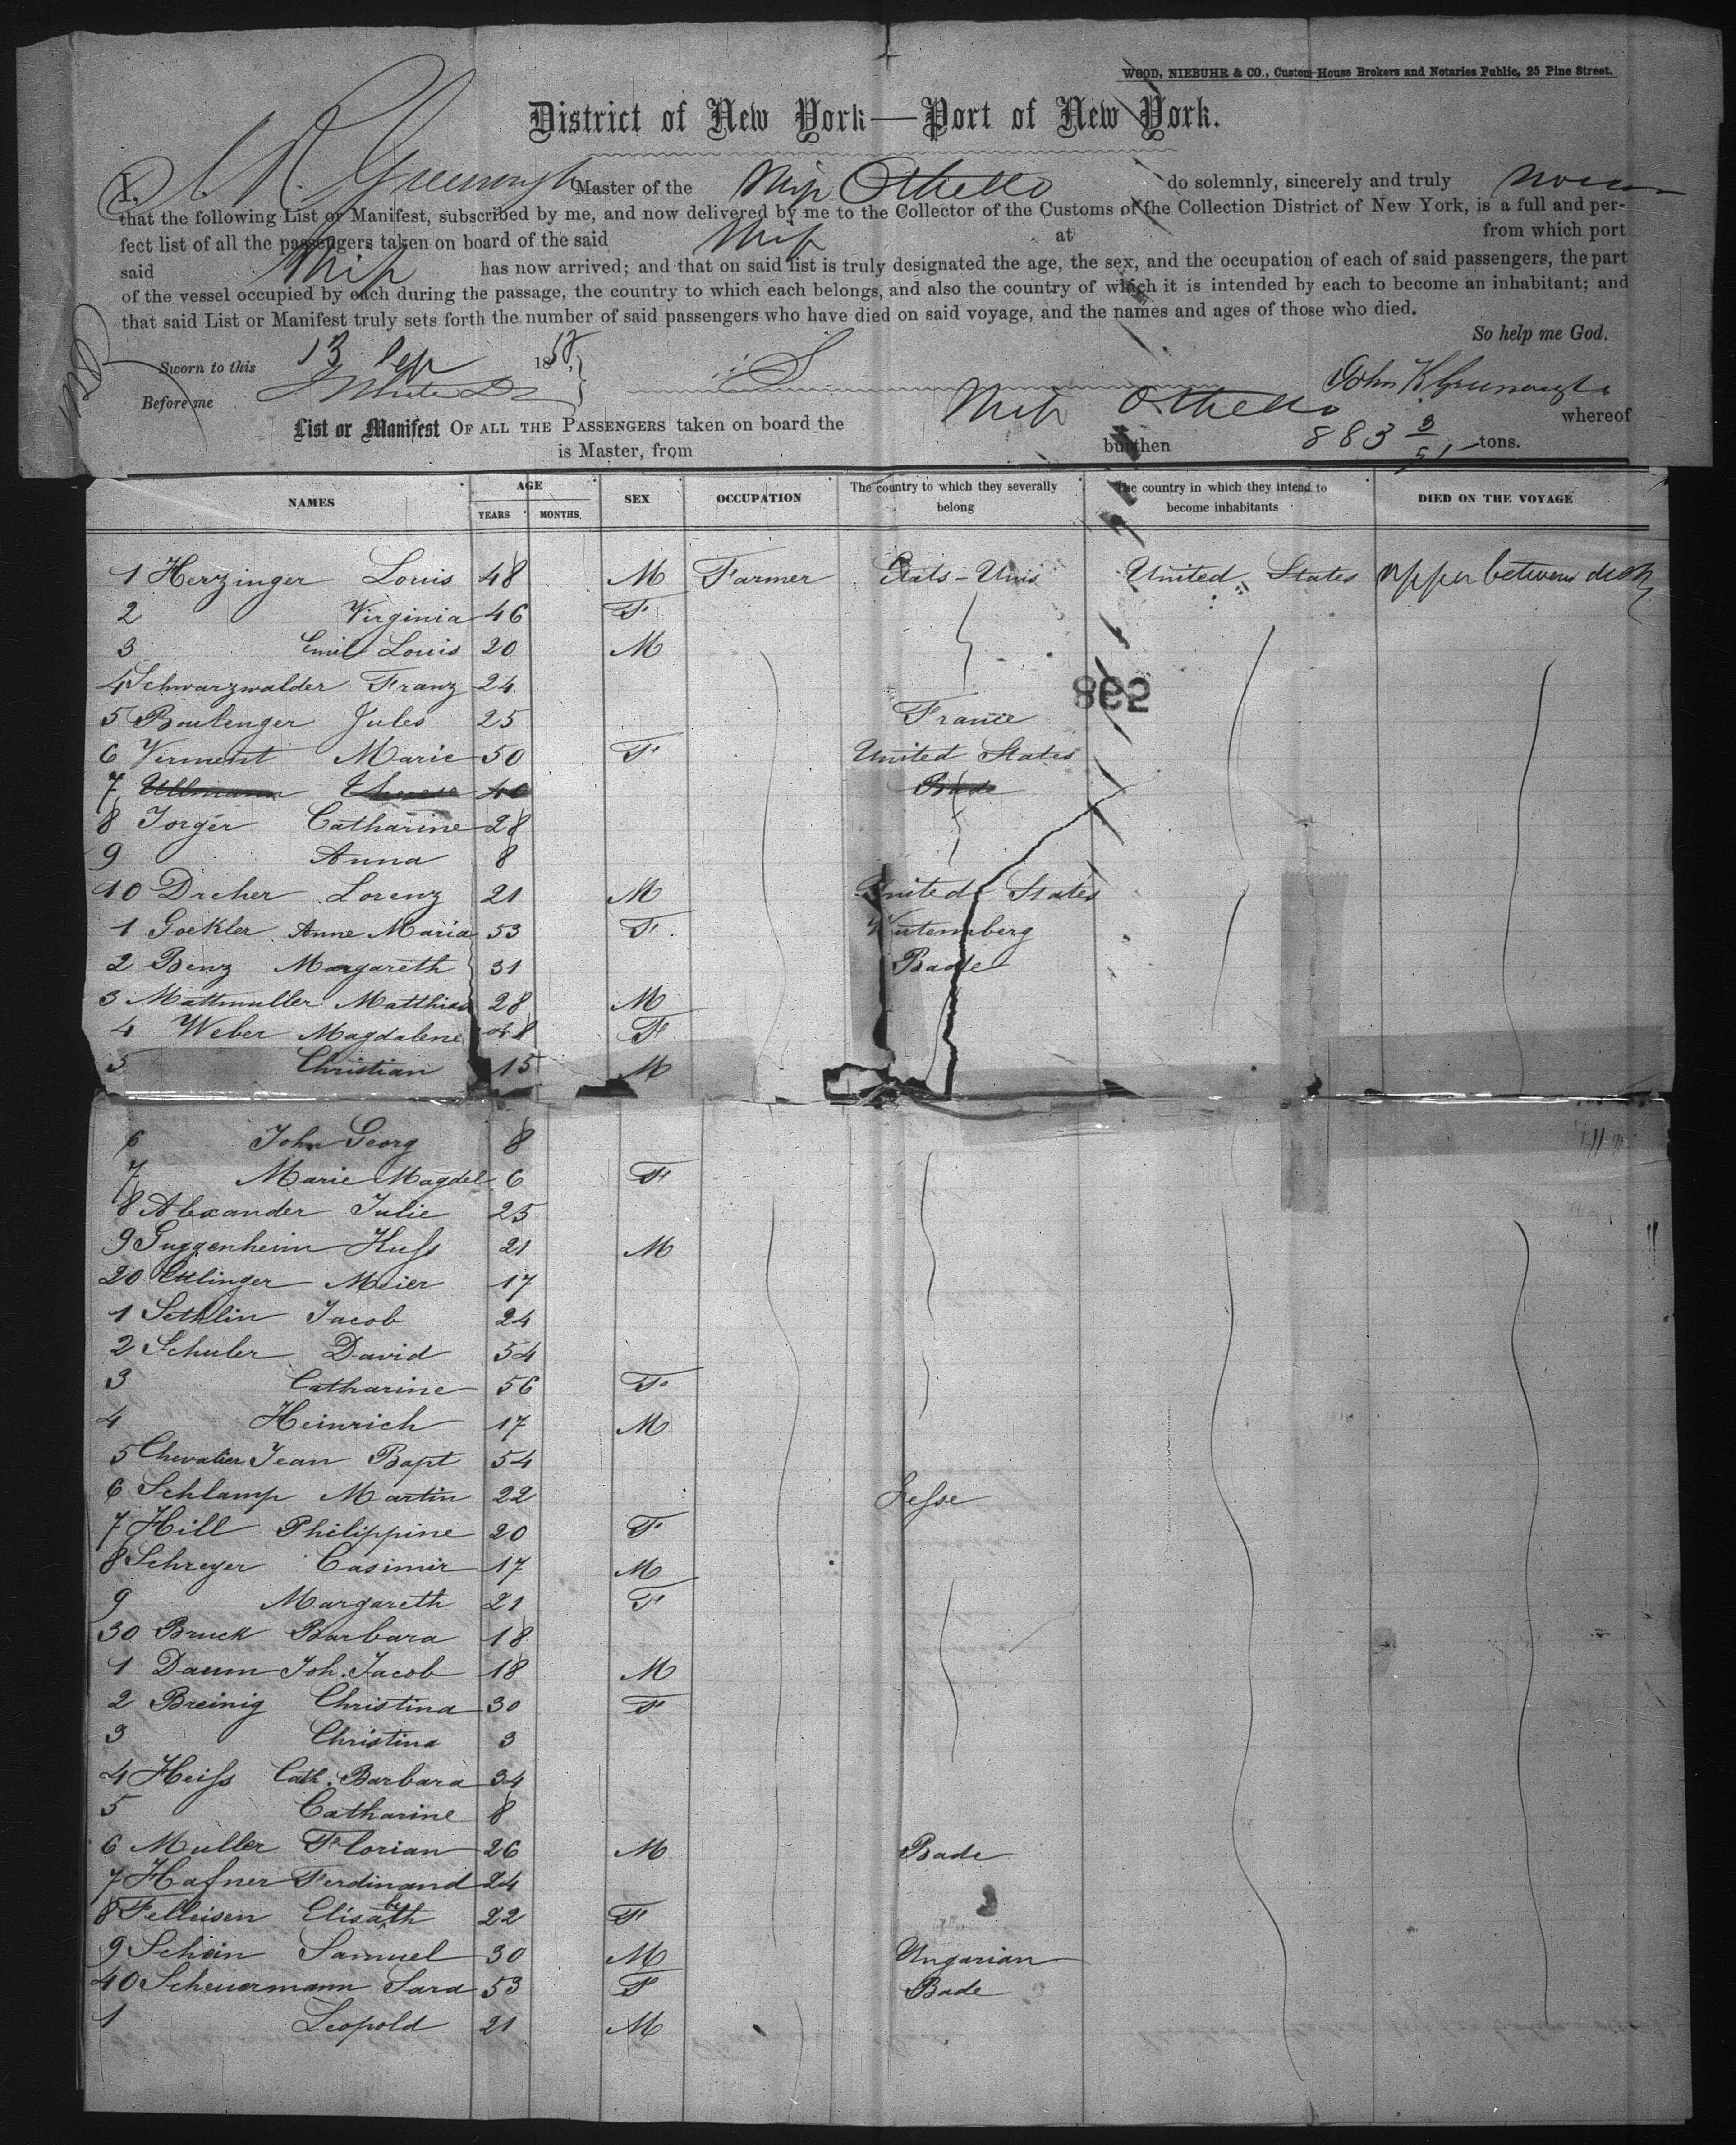 WOOD, NIEBUHR & CO., Custom House Brokers and Notaries Public, 25 Pine Street.
District of New York—Port of New York.
I, J. K. Greenough Master of the Ship Othello do solemnly, sincerely and truly swear
that the following List or Manifest, subscribed by me, and now delivered by me to the Collector of the Customs of the Collection District of New York, is a full and per-
fect list of all the passengers taken on board of the said Ship at from which port
said Ship has now arrived; and that on said list is truly designated the age, the sex, and the occupation of each of said passengers, the part
of the vessel occupied by each during the passage, the country to which each belongs, and also the country of which it is intended by each to become an inhabitant; and
that said List or Manifest truly sets forth the number of said passengers who have died on said voyage, and the names and ages of those who died.
So help me God.
Sworn to this 13 Sep 1858
Before me
John K Greenough
List or Manifest OF ALL THE PASSENGERS taken on board the Ship Othello whereof
is Master, from burthen 883 tons.
NAMES AGE YEARS MONTHS SEX OCCUPATION The country to which they severally belong The country in which they intend to become inhabitants DIED ON THE VOYAGE
1 Herzinger Louis 48 M Farmer Etats-Unis United States upper between deck
2 Virginia 46 F
3 Emil Louis 20 M
4 Schwarzwalder Franz 24
862
5 Boulenger Jules 25 France
6 Verment Marie 50 F United States
7 Ullmann Therese 40 Bade
8 Jorger Catharine 28
9 Anna 8
10 Dreher Lorenz 21 M United States
1 Gockler Anne Maria 53 F Wurtemberg
2 Benz Margareth 31 Bade
3 Mattmuller Matthias 28 M
4 Weber Magdalene 48 F
5 Christian 15 M
6 John Georg 8
7 Marie Magdel 6 F
8 Alexander Julie 25
9 Guggenheim Kuss 21 M
20 Ettlinger Meier 17
1 Sethlin Jacob 24
2 Schuler David 54
3 Catharine 56 F
4 Heinrich 17 M
5 Chevalier Jean Bapt 54
6 Schlamp Martin 22 Hesse
7 Hill Philippine 20 F
8 Schreyer Casimir 17 M
9 Margareth 21 F
30 Bruck Barbara 18
1 Daum Joh. Jacob 18 M
2 Breinig Christina 30 F
3 Christina 3
4 Heiss Cath. Barbara 34
5 Catharine 8
6 Muller Florian 26 M Bade
7 Hafner Ferdinand 24
8 Felleisen Elisabeth 22 F
9 Schein Samuel 30 M Ungarian
40 Scheuermann Sara 53 F Bade
1 Leopold 21 M